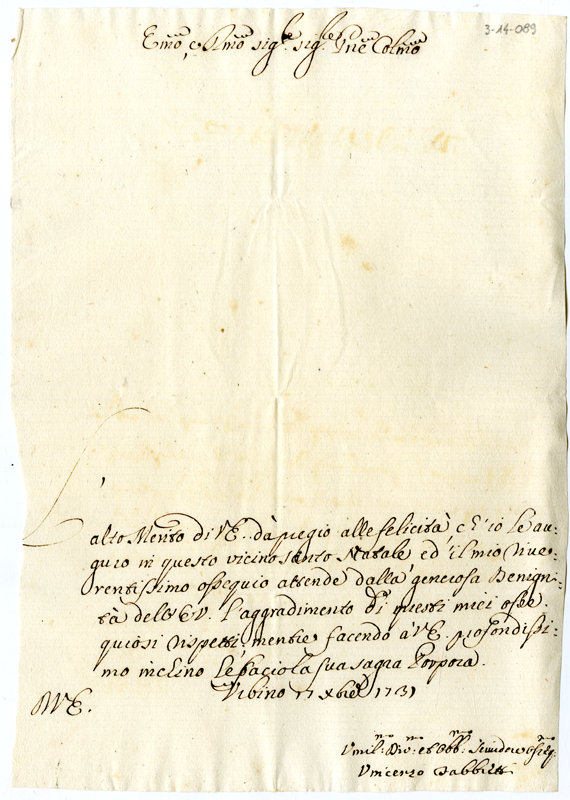 3-14-089
Emo, e Rmo Sigre Sigre Pne Colmo
L'
alto Merito di V.E. dà pregio alle felicità ch'io le au:
guro in questo vicino santo Natale ed' il mio rive:
rentissimo ossequio attende dalla generosa Benigni:
tà dell'E.V. l'aggradimento di questi miei osse:
quiosi rispetti, mentre facendo à V.E. profondissi:
mo inchino le bacio la sua sagra Porpora.
Urbino 17 Xbre 1731
D.V.E.
Umil:mo Div:mo et Obb:mo Servidore
Vincenzo